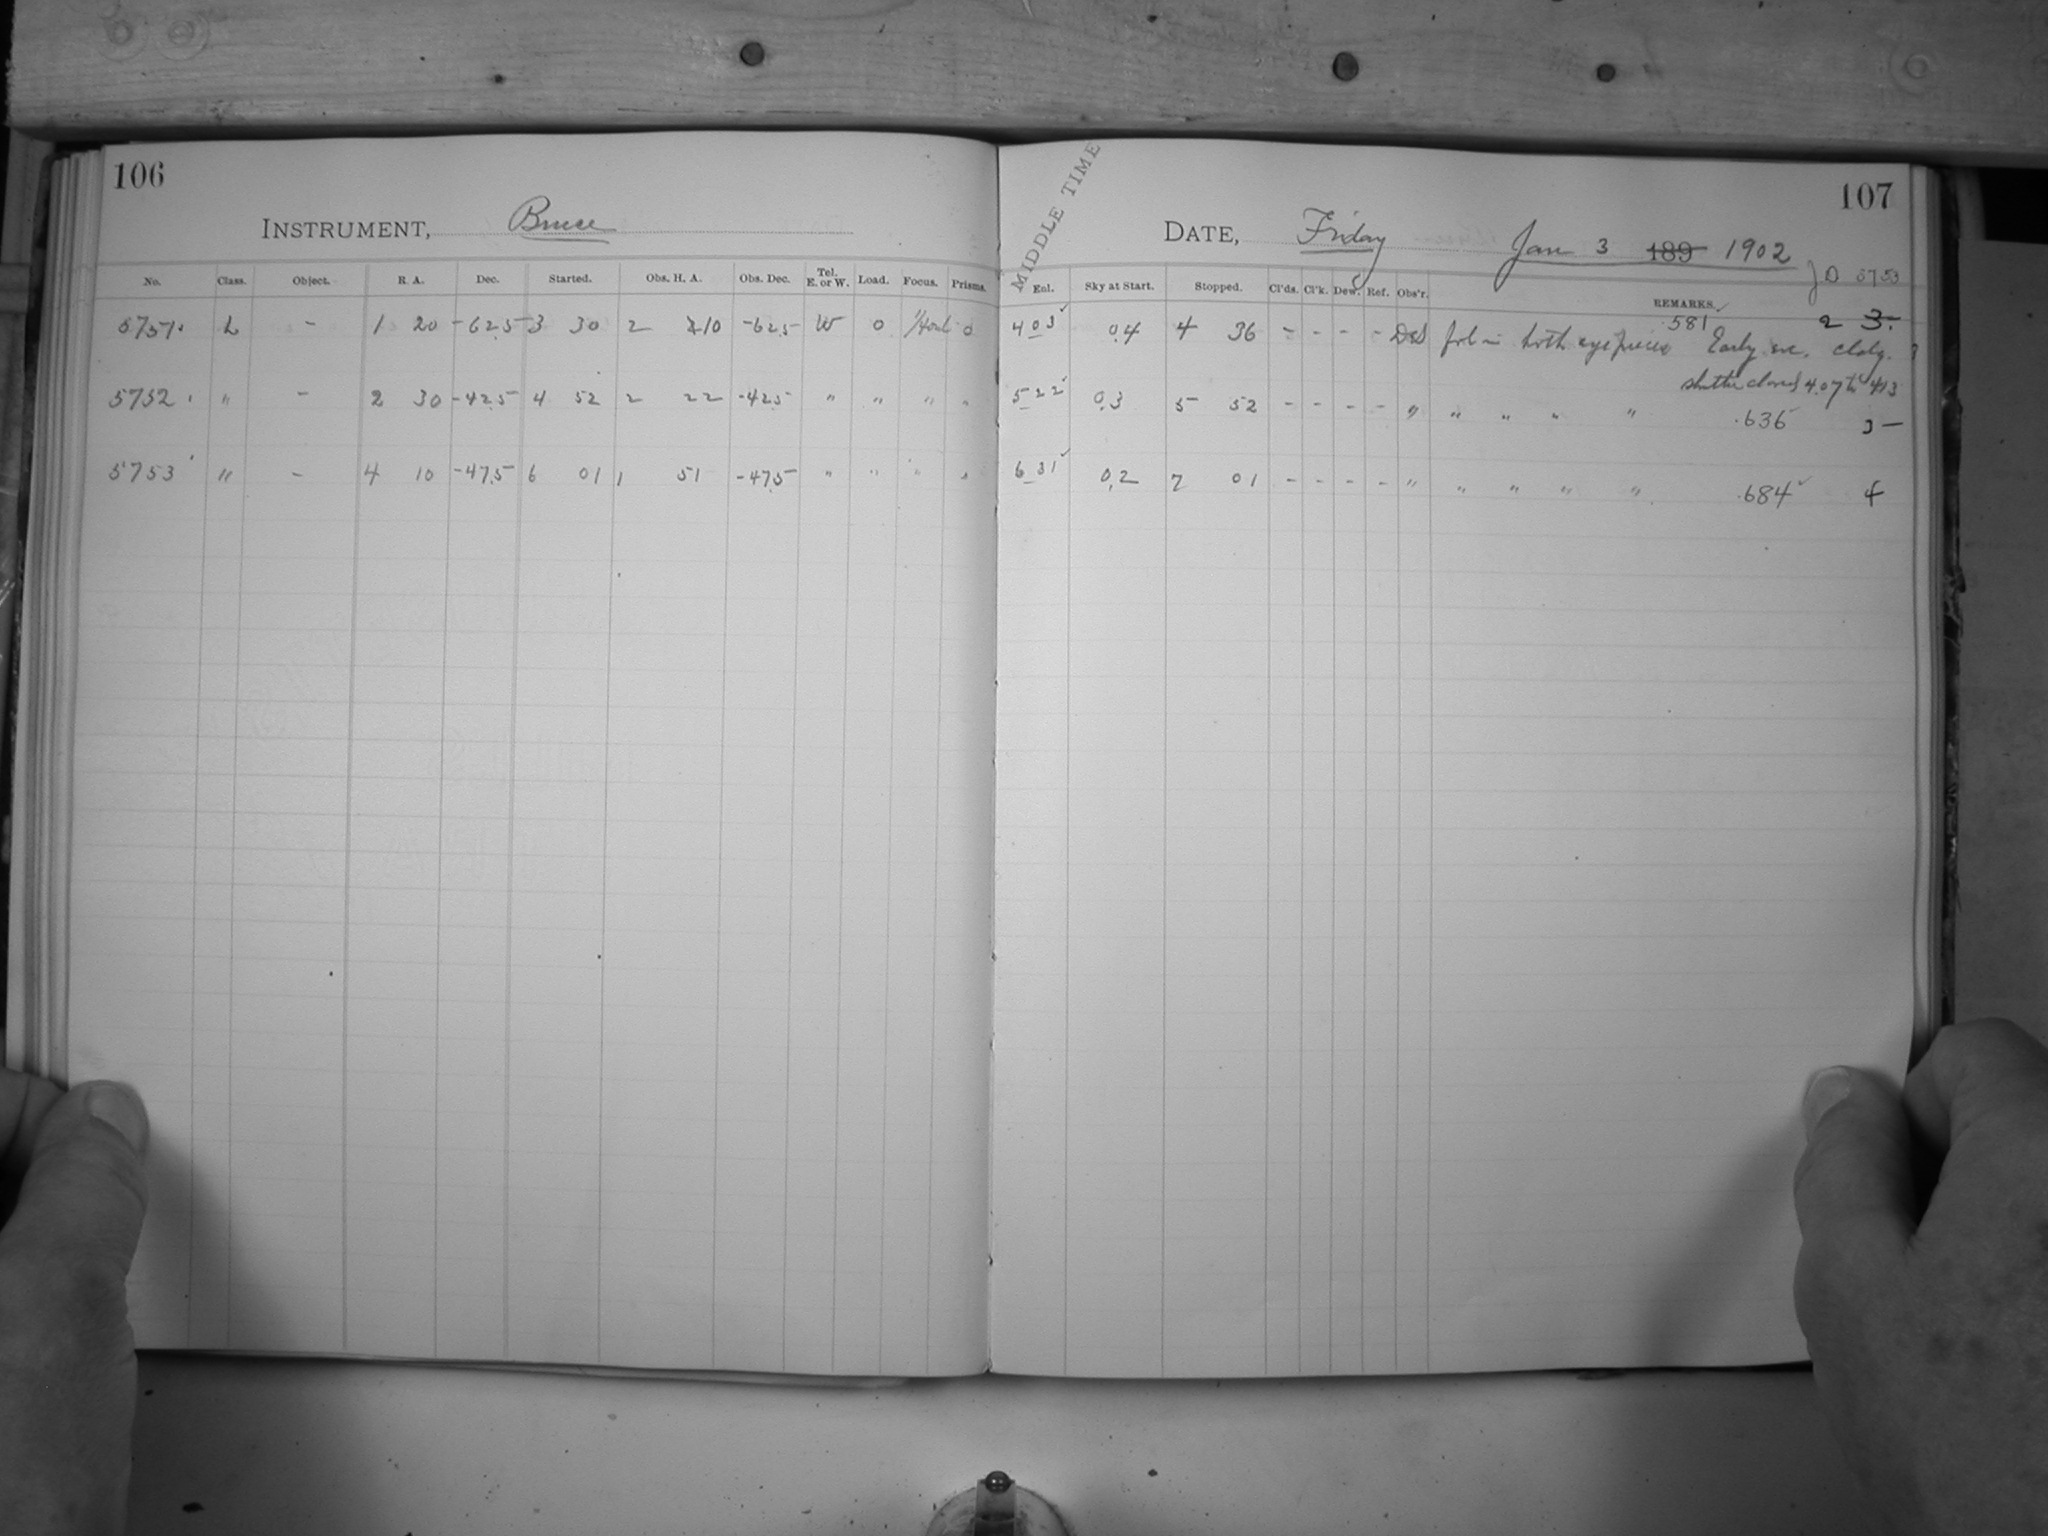 106
INSTRUMENT, Bruce
No. Class. Object. R. A. Dec. Started. Obs. H. A. Obs. Dec. Tel. E. or W. Load. Focus. Prisms.
5751 L - 1 20 -62.5 3 30 2 10 -62.5 W 0 0
5752 " - 2 30 -42.5 4 52 2 22 -42.5 " " " "
5753 " - 4 10 -47.5 6 01 1 51 -47.5 " " " "
107
MIDDLE TIME
DATE, Friday Jan 3 189 1902
JD 5753
Eol. Sky at Start. Stopped. Cl'ds. Cl'k. Dew. Ref. Obs'r. REMARKS.
403 0.4 4 36 - - - - fol in both eyepieces .581 Early eve. cldy. 2 3-
shutter closed 4.07 to 413
522 0.3 5 52 - - - - " " " " " .636 3 -
631 0.2 7 01 - - - - " " " " " .684 4